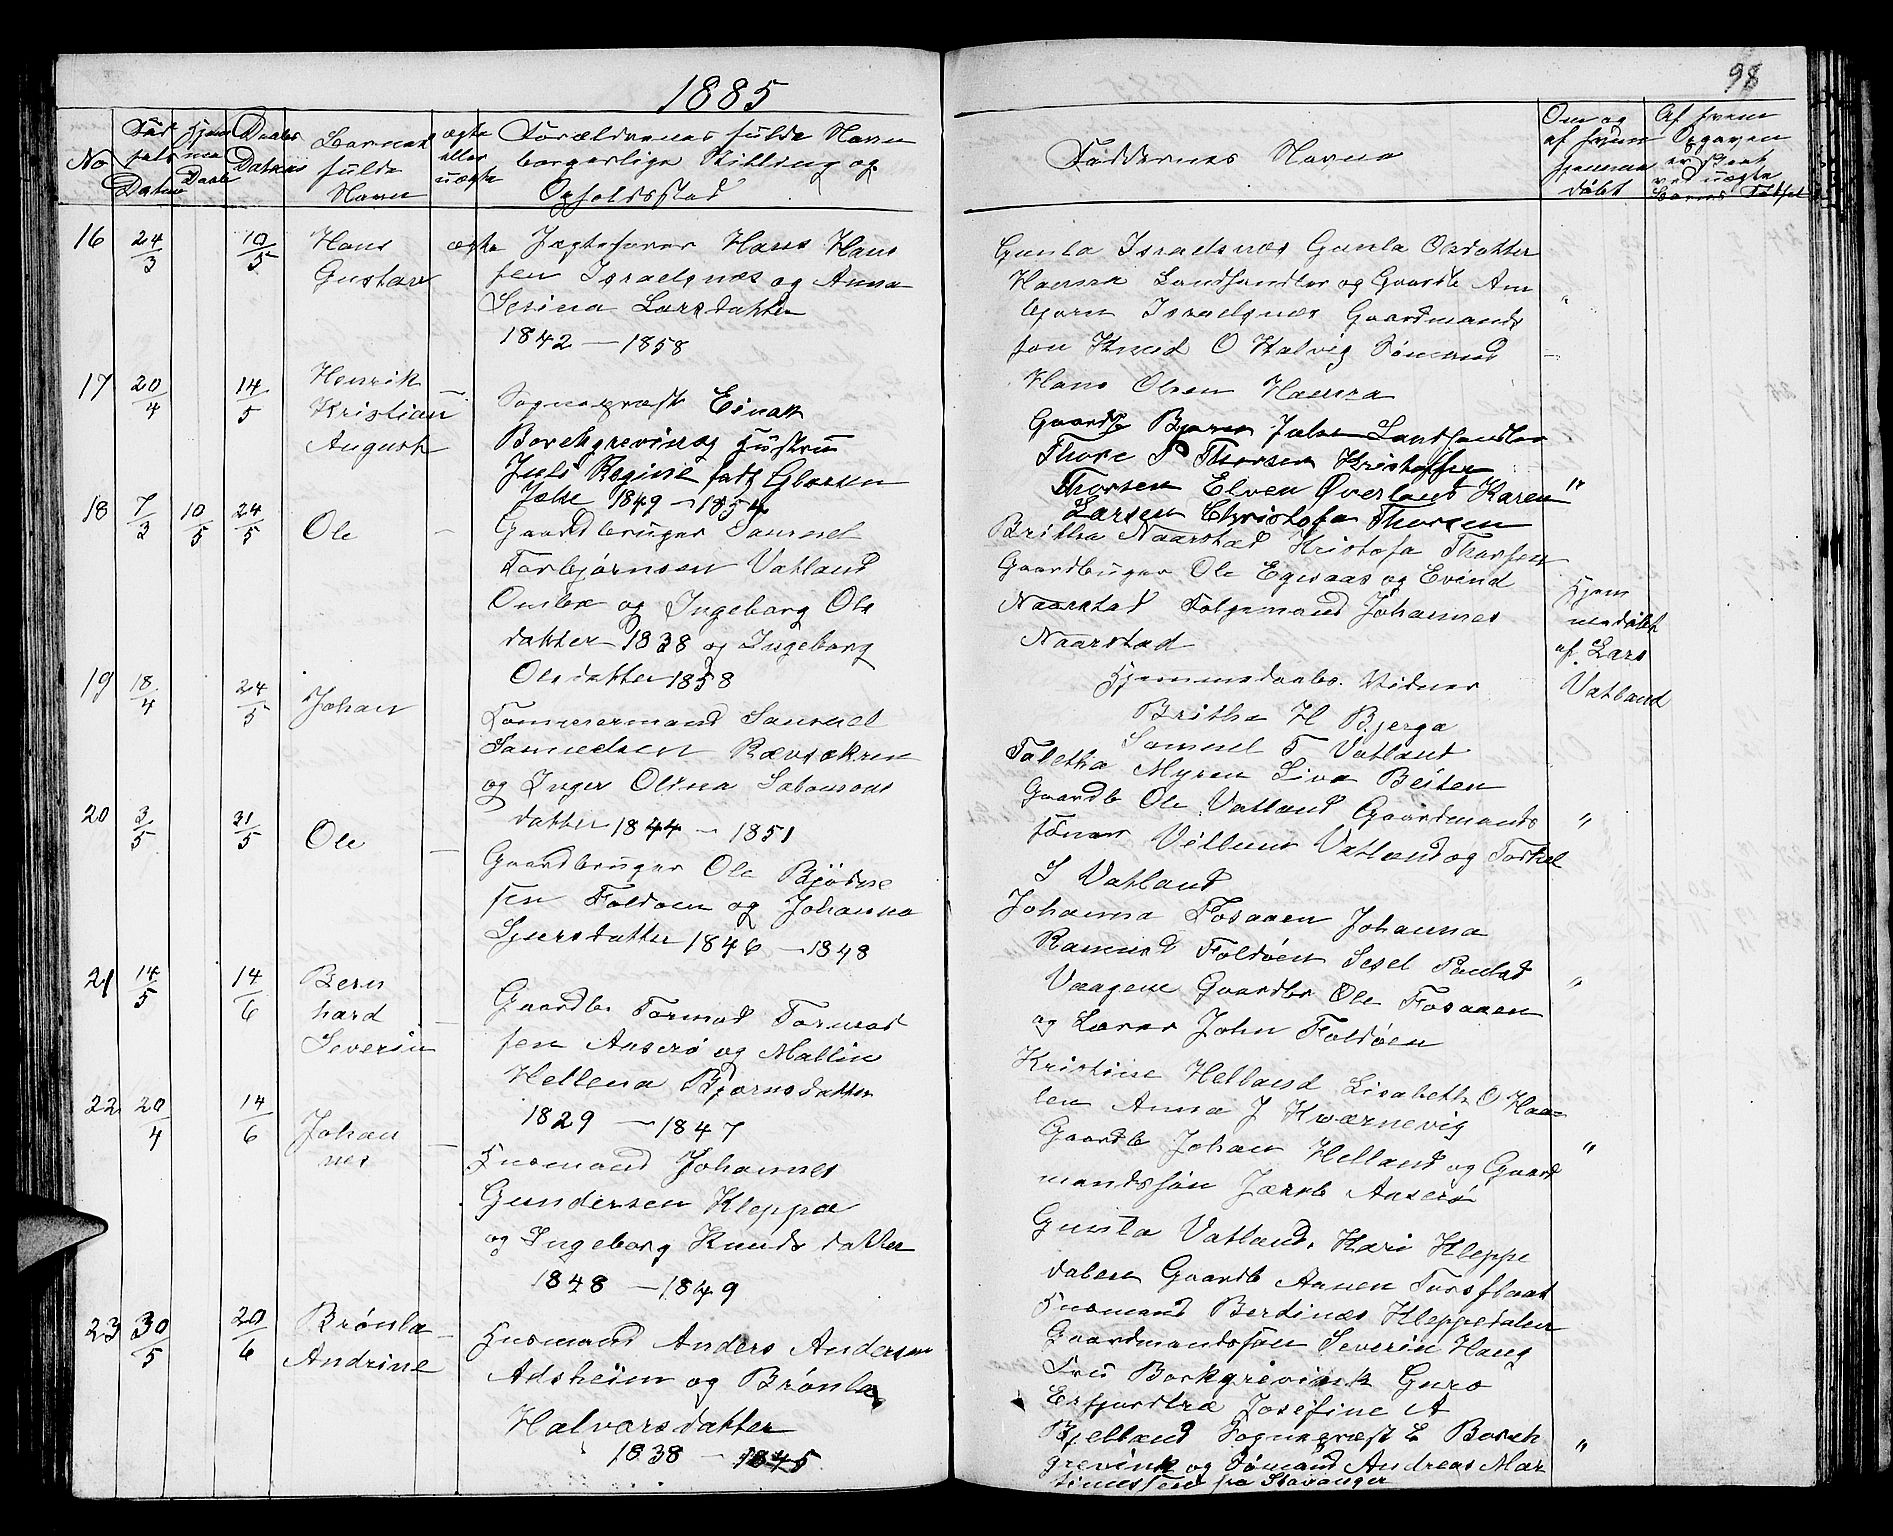 1885
98
No
Fød
sels
Datum
Hjem
me
Daab
Daabs
Datum
Barnets
fulde
Navn
ægte
eller
uægte
Forældrenes fulde Navn
borgerlige Stilling og
Opholdssted
Faddernes Navne
Om og
af hvem
hjemme
døbt
Af hvem
Opgaven
er skeet
ved uægte
Barns Fødsel
16 24/3 10/5 Hans
Gustav
ægte
Jægtefører Hans Hans
sen Israelsnæs og Anna
Sesina Larsdatter
1842 – 1858
Gunla Israelsnæs Gunla Olsdatter
Hamra Landhandler og Gaardb Am
bjørn Israelsnæs Gaardmands
søn Knud O Kalvig Sømand
Hans Olsen Hamra
"
17 20/4 14/5 Henrik
Kristian
August
–
Sogneprest Einar
Borchgrevink og Hustru
Juls Regine født Gloersen
Jelse 1849 – 1854
Gaardb Bjørn Jelse Landhandler
Thore P Thorsen Kristoffer
Thorsen Elven Øverland Karen
Larsen Christofa Thorsen
"
18 7/3 10/5 24/5 Ole –
Gaardbruger Samuel
Torbjørnsen Vatland
Ombo og Ingeborg Ols
datter 1838 og Ingeborg
Olsdatter 1858
Britha Naarstad Kristofa Thorsen
Gaardbruger Ole Egesaas og Evind
Naarstad Folgemand Johannes
Naarstad
Hjemmedaabs Vidner
Britha H Bjerga
Samuel T Vatland
Hjem
medøbt
af Lars
Vatland
19 18/4 24/5 Johan
Tømmermand Samuel
Samuelsen Rævsakren
og Inger Olina Salomons
datter 1844 – 1851
Taletha Myren Liva Beiten
Gaardb Ole Vatland Gaardmands
sønner Villum Vatland og Torkel
S Vatland
"
20 3/5 31/5 Ole –
Gaardbruger Ole Bjødne
sen Foldøen og Johanna
Sjursdatter 1846 – 1848
Johanna Fosaaen Johanna
Ramsud Foldøen Sesel
Vaagene Gaardbr Ole Fosaaen
og Lærer John Foldøen
"
21 14/5 14/6 Bern
hard
Severin
–
Gaardb. Tormod Tormod
sen Anserø og Mallin
Hellena Bjørnsdatter
1829 – 1847
Kristine Helland Lisabeth O Haa
len Anna J Kværnevig
Gaardb Johan Helland og Gaard
mandssøn Jacob Anserø
"
22 20/4 14/6 Johan
nes
–
Husmand Johannes
Gundersen Kleppa
og Ingeborg Knudsdatter
1848 – 1849
Gunla Vatland, Kari Kleppe
dalen Gaardb Aanen Torsflaat
Husmand Berdines Kleppedalen
Gaardmandssøn Severin Haug
23 30/5 20/6 Brønla
Andrine
–
Husmand Anders Andersen
Adsheim og Brønla
Halvorsdatter
1838 – 1845
Fru Borkgrevink Guro
Erfjordtræ Josefine A
Bjelland Sogneprest E Borch
grevink og Sømand Andreas Mar
tinussen fra Stavanger
"